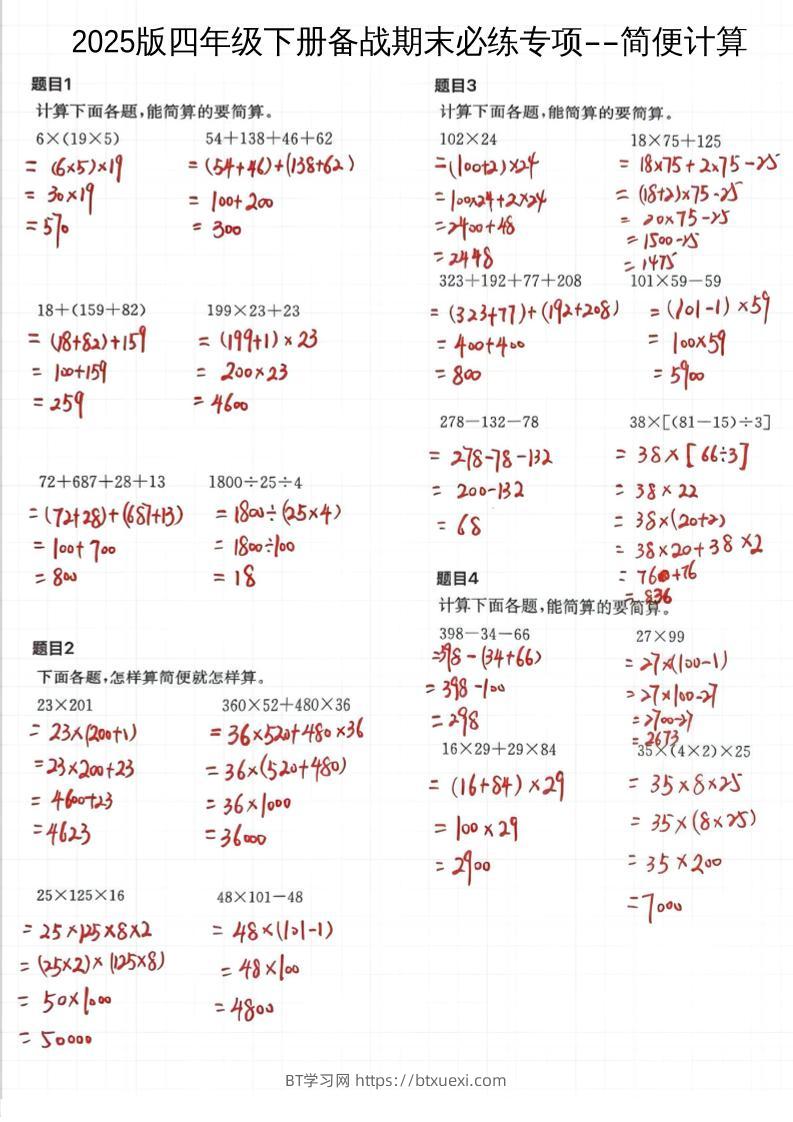 2025版四年级下册备战期末必练专项--简便计算
题目1
计算下面各题,能简算的要简算。
6×(19×5)
= (6×5)×19
= 30×19
= 570
54+138+46+62
= (54+46)+(138+62)
= 100+200
= 300
18+(159+82)
= (18+82)+159
= 100+159
= 259
199×23+23
= (199+1)×23
= 200×23
= 4600
72+687+28+13
= (72+28)+(687+13)
= 100+700
= 800
1800÷25÷4
= 1800÷(25×4)
= 1800÷100
= 18
题目2
下面各题,怎样算简便就怎样算。
23×201
= 23×(200+1)
= 23×200+23
= 4600+23
= 4623
360×52+480×36
= 36×520+480×36
= 36×(520+480)
= 36×1000
= 36000
25×125×16
= 25×125×8×2
= (25×2)×(125×8)
= 50×1000
= 50000
48×101-48
= 48×(101-1)
= 48×100
= 4800
题目3
计算下面各题,能简算的要简算。
102×24
= (100+2)×24
= 100×24+2×24
= 2400+48
= 2448
18×75+125
= 18×75+2×75-25
= (18+2)×75-25
= 20×75-25
= 1500-25
= 1475
323+192+77+208
= (323+77)+(192+208)
= 400+400
= 800
101×59-59
= (101-1)×59
= 100×59
= 5900
278-132-78
= 278-78-132
= 200-132
= 68
38×[(81-15)÷3]
= 38×[66÷3]
= 38×22
= 38×(20+2)
= 38×20+38×2
= 760+76
= 836
题目4
计算下面各题,能简算的要简算。
398-34-66
= 398-(34+66)
= 398-100
= 298
27×99
= 27×(100-1)
= 27×100-27
= 2700-27
= 2673
16×29+29×84
= (16+84)×29
= 100×29
= 2900
35×(4×2)×25
= 35×8×25
= 35×(8×25)
= 35×200
= 7000
BT学习网 https://btxuexi.com